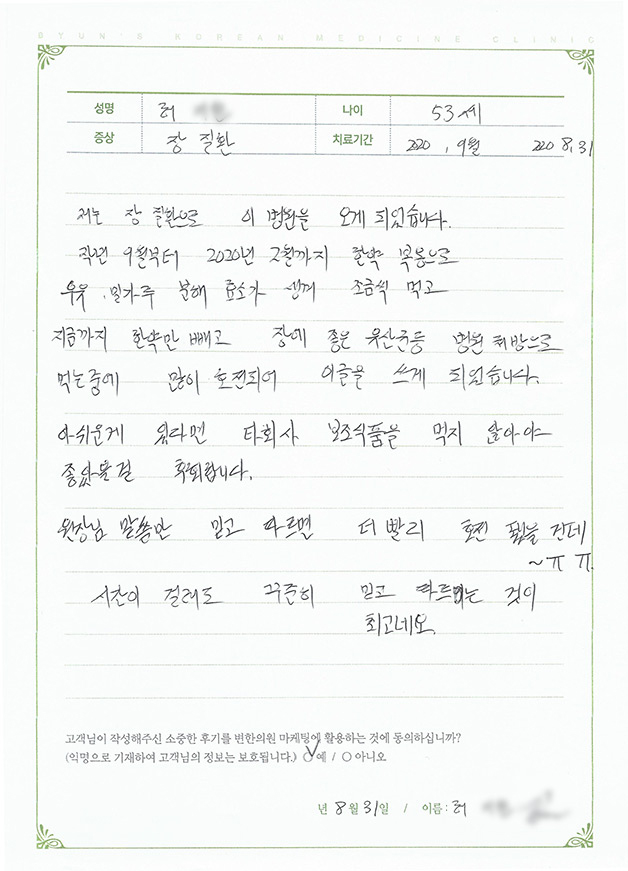 BYUN'S KOREAN MEDICINE CLINIC
성명 나이 53세
증상 장 질환 치료기간 2020, 9월 2020 8.31
저는 장 질환으로 이 병원을 오게 되었습니다.
작년 9월부터 2020년 2월까지 한약 복용으로
우유, 밀가루 분해 효소가 생겨 조금씩 먹고
지금까지 한약만 빼고 장에 좋은 유산균등 병원 처방으로
먹는중에 많이 호전되어 이글을 쓰게 되었습니다.
아쉬운게 있다면 타회사 보조식품을 먹지 않아야
좋았을걸 후회합니다.
원장님 말씀만 믿고 따르면 더 빨리 호전 됬을 건데
~ㅠㅠ.
시간이 걸려도 꾸준히 믿고 따르는 것이
최고네요.
고객님이 작성해주신 소중한 후기를 변한의원 마케팅에 활용하는 것에 동의하십니까?
(익명으로 기재하여 고객님의 정보는 보호됩니다.) ○예 / ○아니오
년 8월 31일 / 이름: